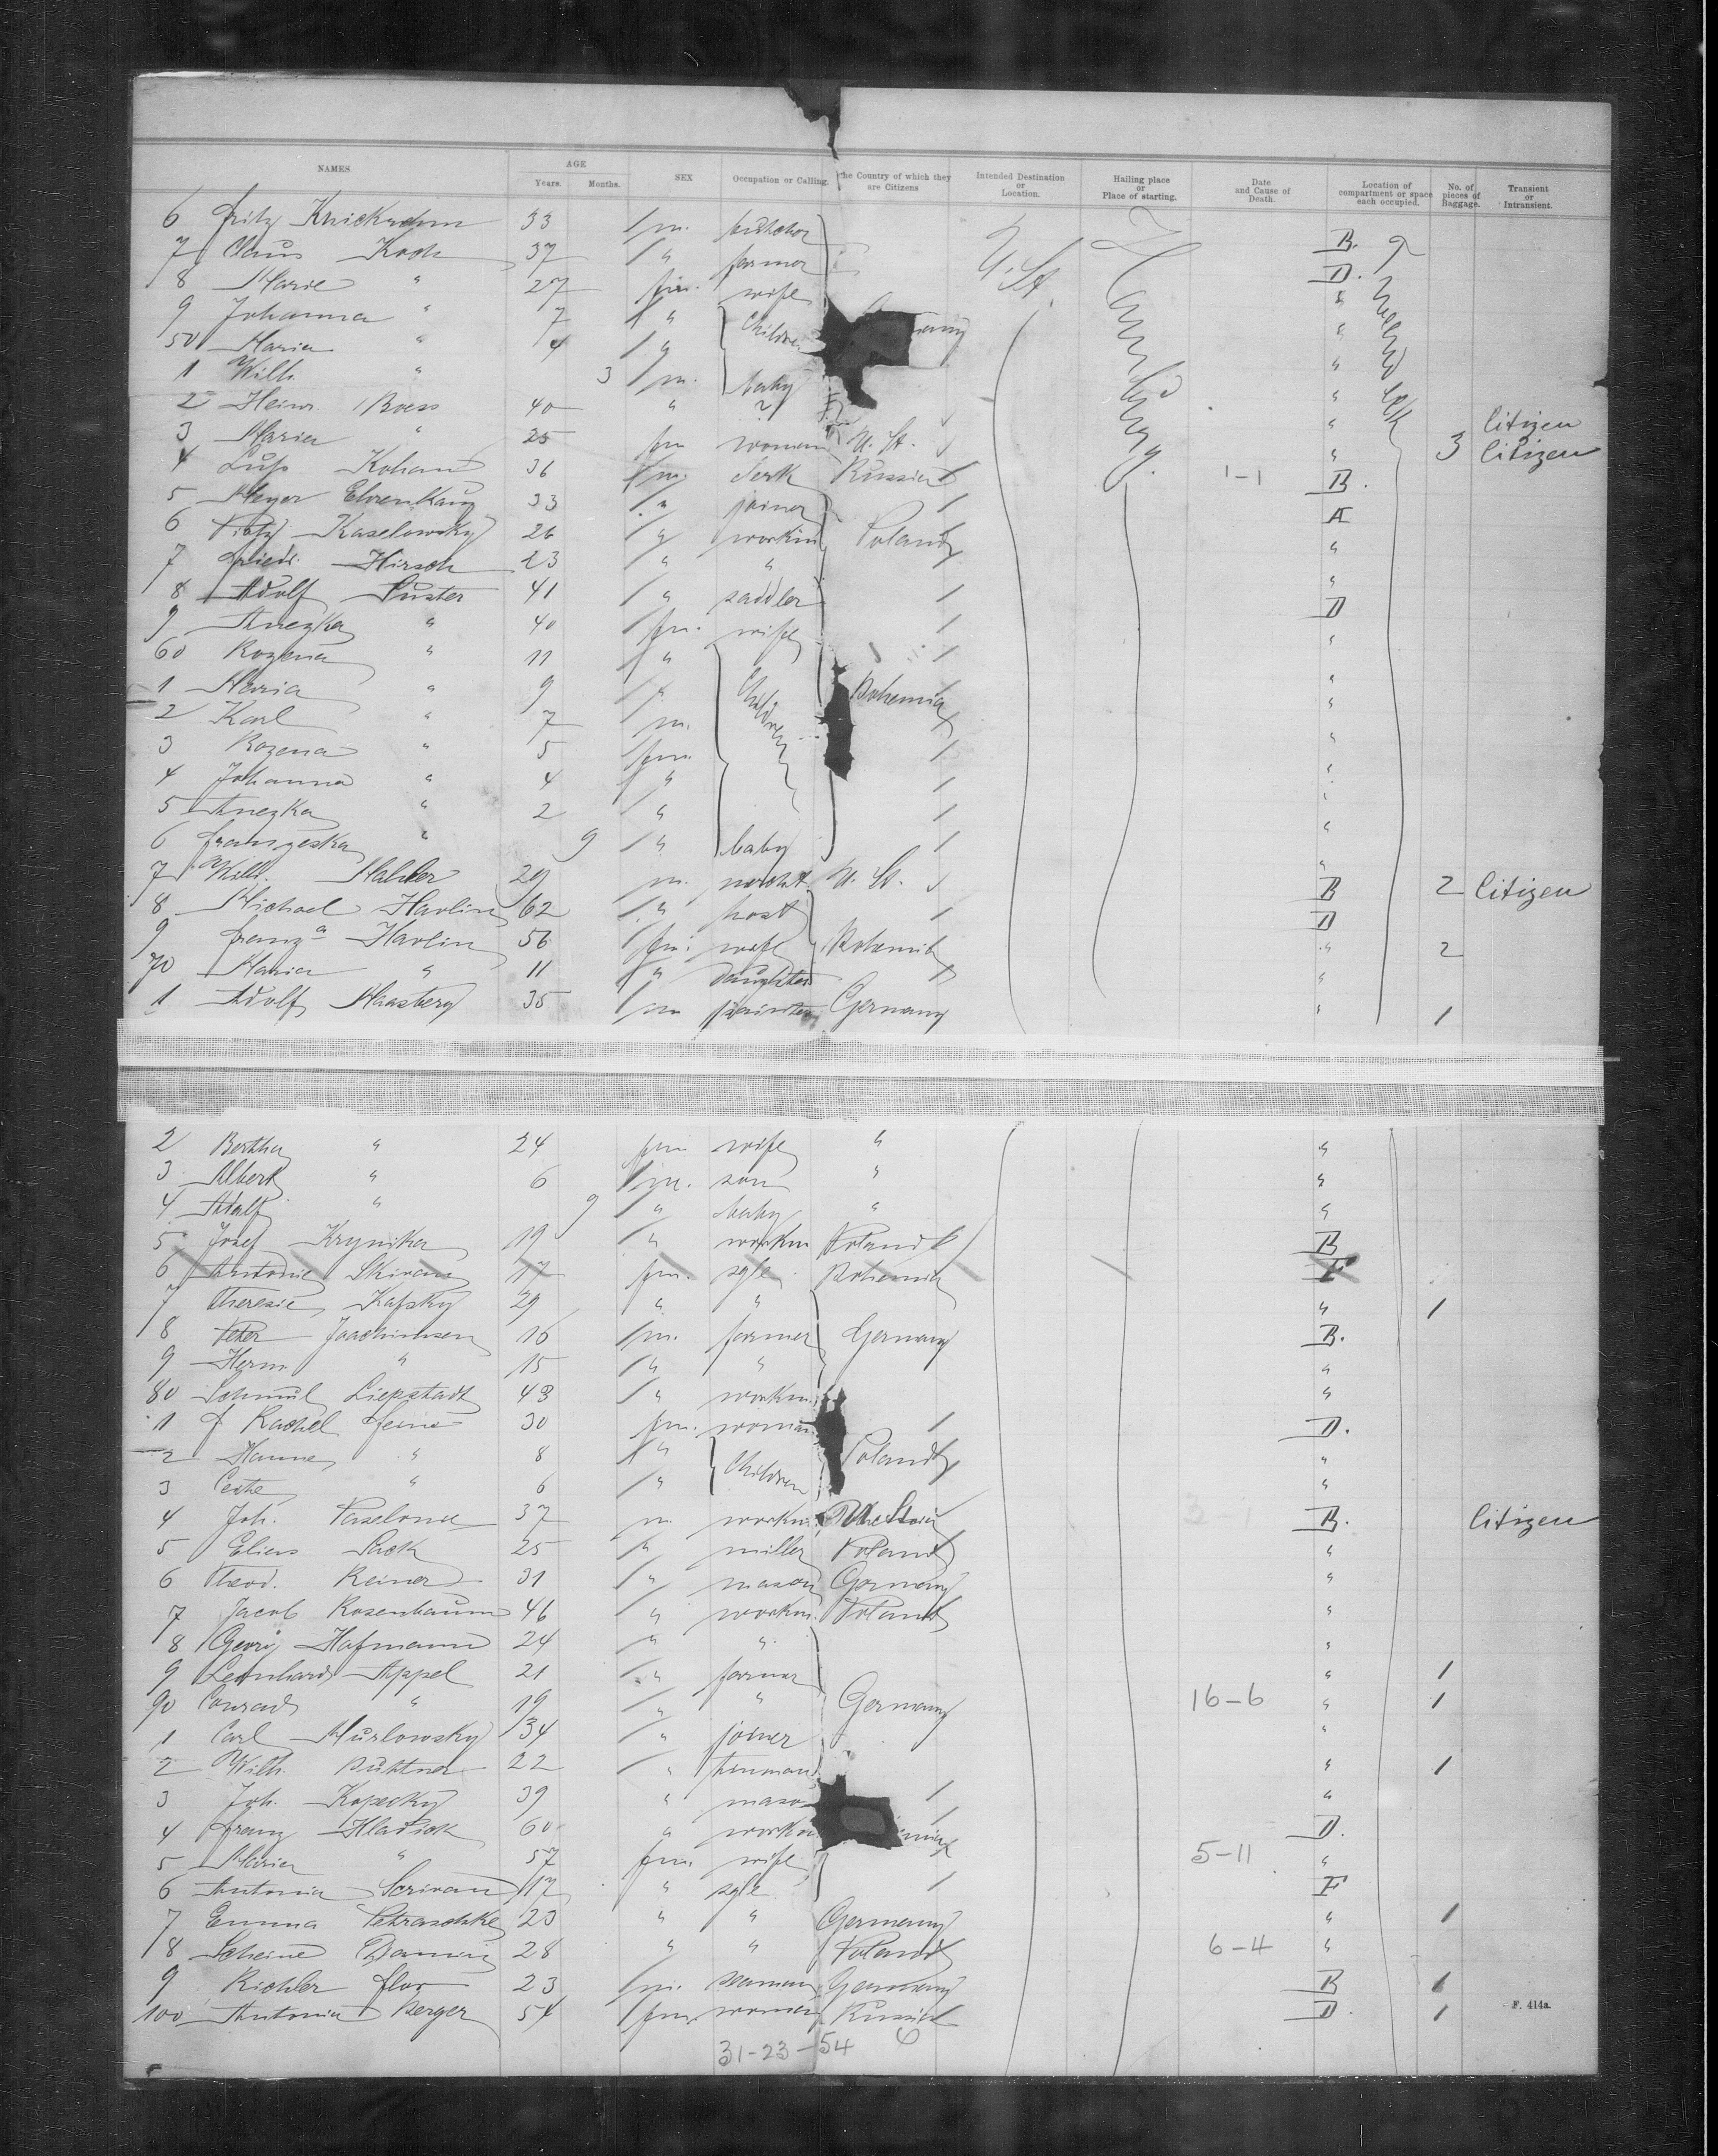 NAMES AGE Years. Months. SEX Occupation or Calling. the Country of which they are Citizens Intended Destination or Location. Hailing place or Place of starting. Date and Cause of Death. Location of compartment or space each occupied. No. of pieces of Baggage. Transient or Intransient.
6 Fritz 33 m. U. St. Hamburg. B.
7 Claus Koch 37 " farmer D.
8 Marie " 27 fm. wife "
9 Johanna " 7 " Children "
50 Maria " 4 " "
1 Wilh. " 3 m. baby "
2 Heinr. Boess 40 " ? " Citizen
3 Maria " 25 fm woman U. St. " 3 Citizen
4 Kohan 36 m clerk Russia 1-1 B.
5 Meyer 33 " joiner Æ
6 Kaselowsky 26 " workm Poland "
7 Friedr. Hirsch 23 " " "
8 Adolf Suster 41 " saddler D
9 Anezka " 40 fm. wife "
60 Rozena " 11 "
1 Maria " 9 " Children Bohemia "
2 Karl " 7 m. "
3 Rozena " 5 fm. "
4 Johanna " 4 " "
5 Anezka " 2 " "
6 Franzeska " 9 " baby "
7 Wilh. Mahler 29 m. U. St. B 2 Citizen
8 Michael Havlin 62 " host D
9 Franz a Havlin 56 fm. wife Bohemia " 2
70 Maria " 11 " daughter "
1 Adolf Maasberg 35 m painter Germany " 1
2 Bertha " 24 fm wife " "
3 Albert " 6 m. son " "
4 Adolf " 9 " baby " "
5 Josef Krynika 19 " workm Poland B
6 Antonie Skivan 17 fm. sgle Bohemia F
7 Theresie Kafsky 29 " " " 1
8 Peter Joachimsen 16 m. farmer Germany B.
9 Herm. " 15 " " "
80 Schmul Liepstadt 43 " workm. "
1 Rachel 30 fm. woman D.
2 Hanne " 8 " Children Poland "
3 " 6 " "
4 Joh. 37 m. workm. U. St. B. Citizen
5 Elias Sack 25 " miller Poland "
6 Theod. Reiner 31 " mason Germany "
7 Jacob Rosenbaum 46 " workm. Poland "
8 Georg Hofmann 24 " " "
9 Leonhard Appel 21 " farmer " 1
90 Conrad " 19 " " Germany 16-6 " 1
1 Carl Murlowsky 34 " joiner "
2 Wilh. Büttner 22 " " 1
3 Joh. Kopecky 39 " mason "
4 Franz Hladick 60 " workm D.
5 Maria " 57 fm. wife 5-11 "
6 Antonia Scrivan 17 " sgle F
7 Emma Petraschke 23 " " Germany " 1
8 Scheine 28 " " Poland 6-4 "
9 Richter 23 m. seaman Germany B 1
100 Antonia Berger 54 fm. woman Russia D. 1
F. 414a.
31-23-54